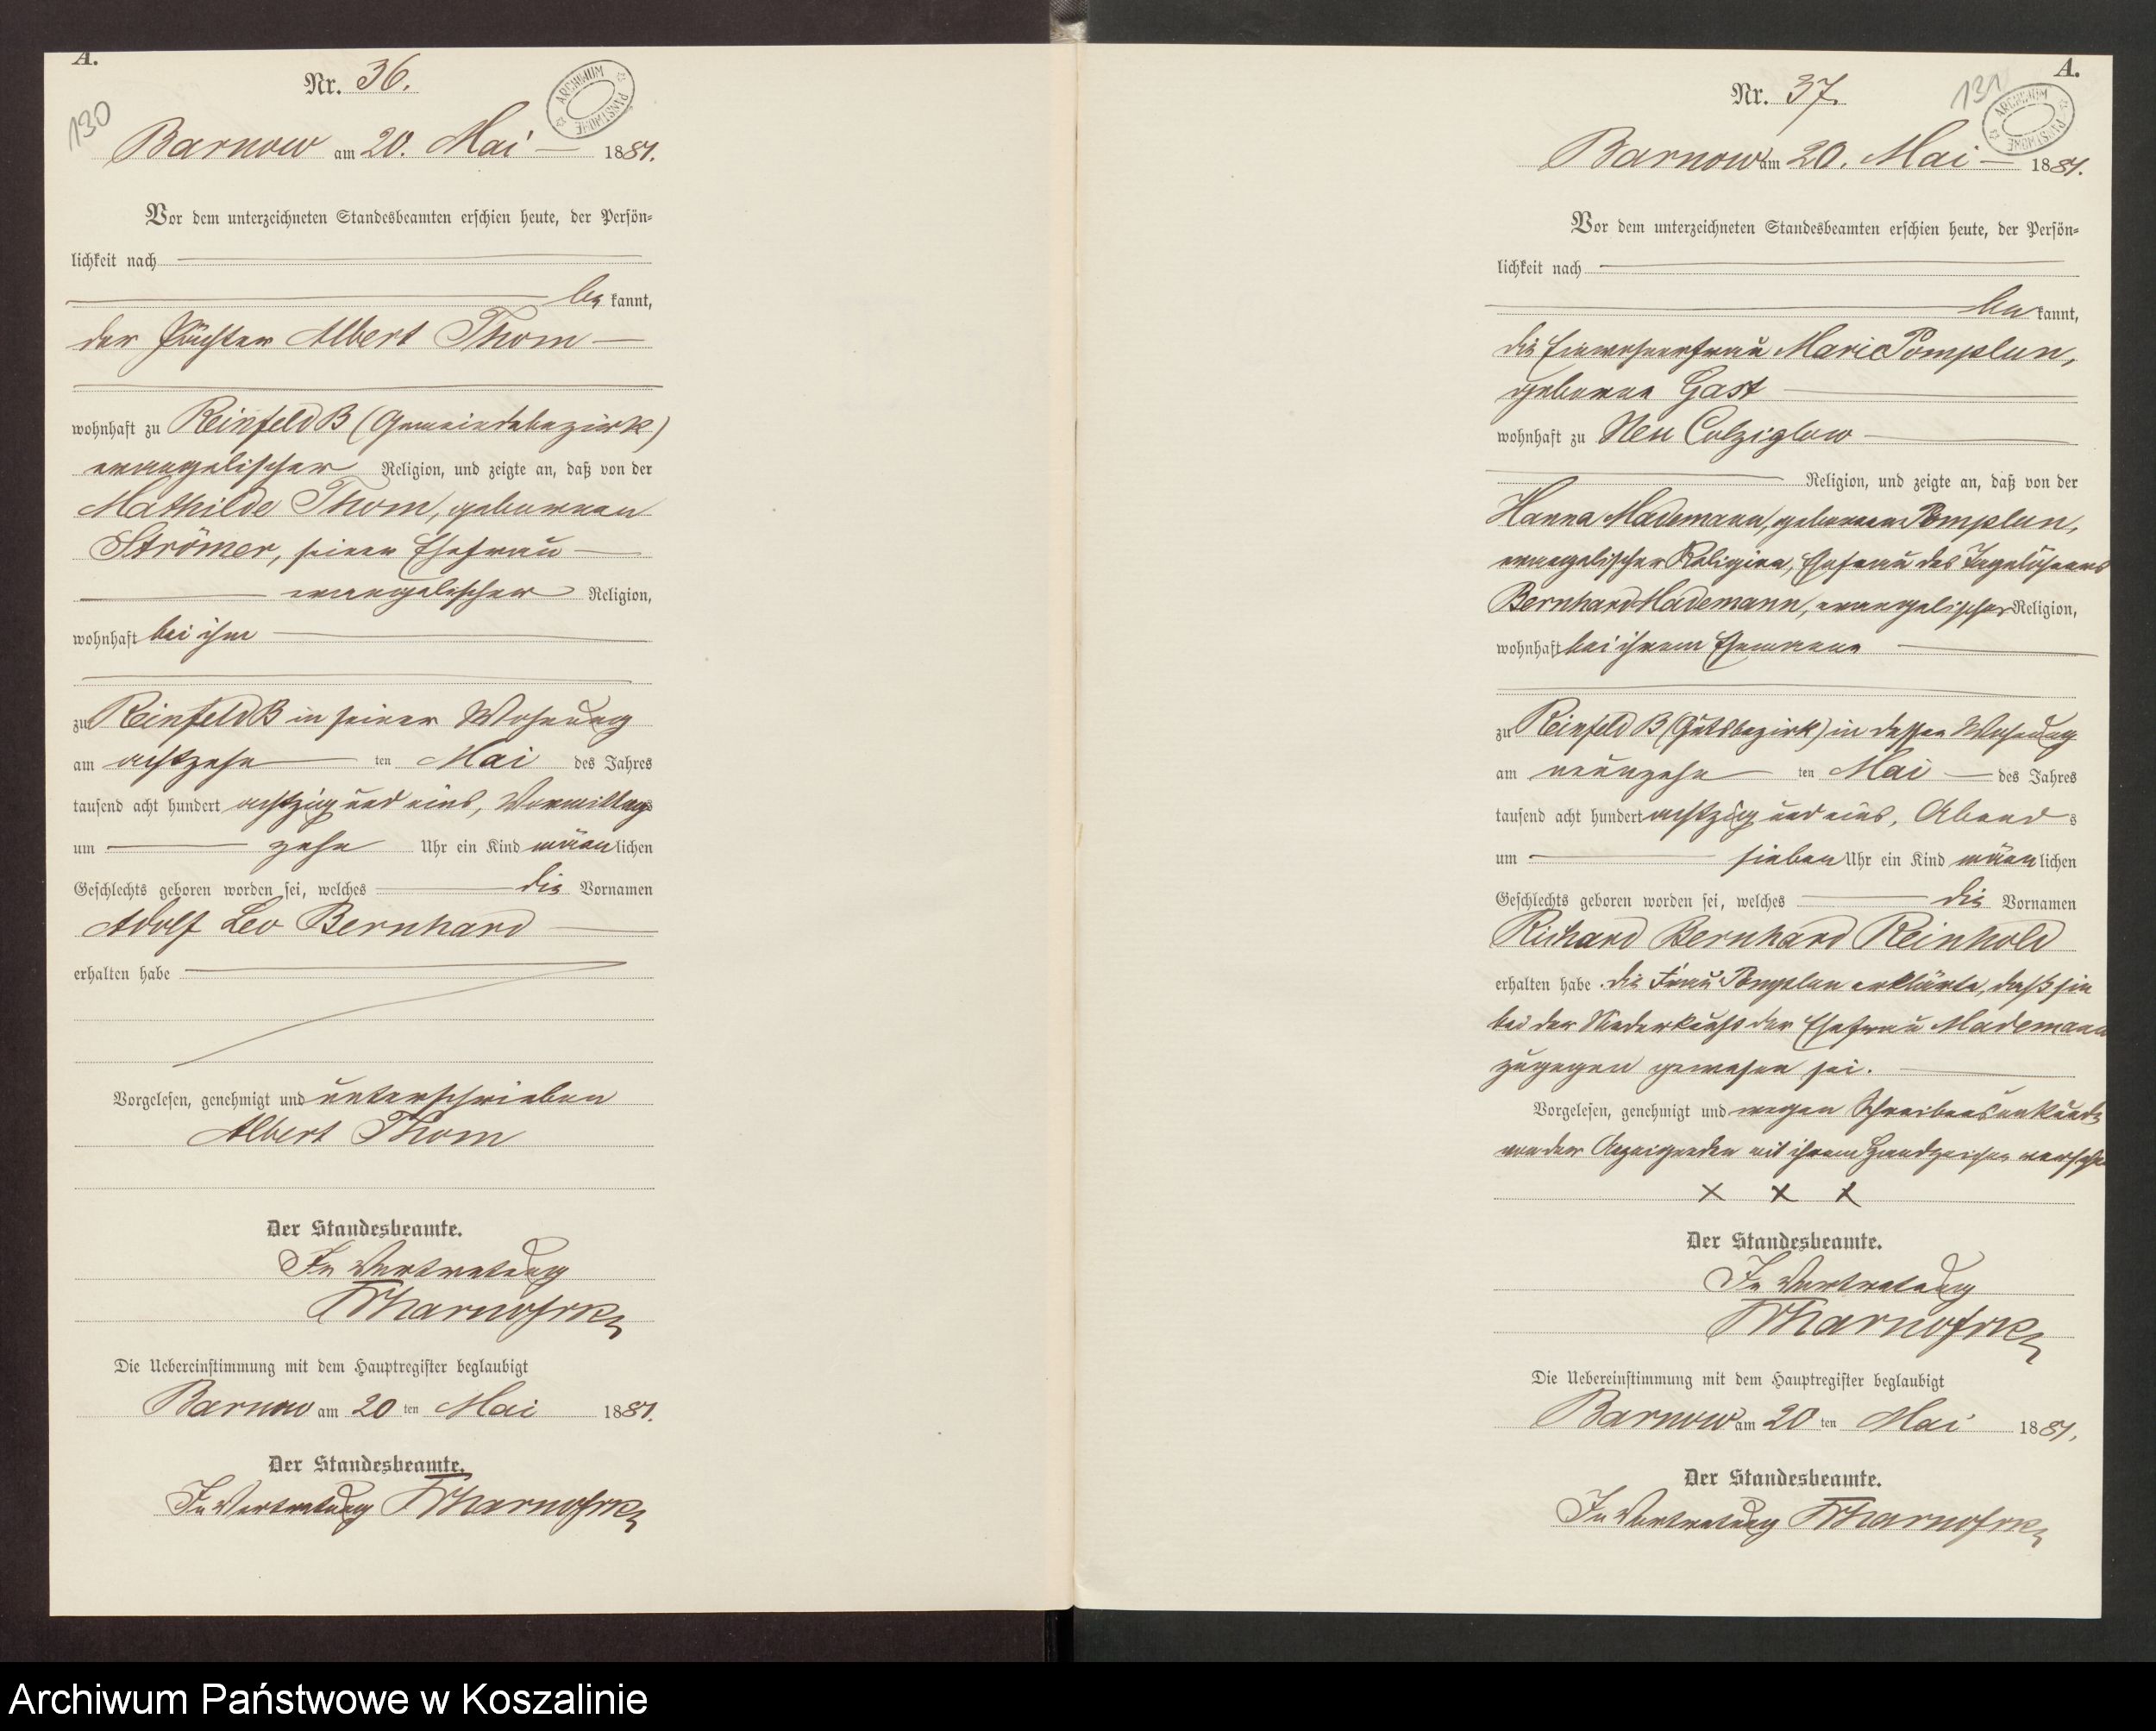 A.
Nr. 36.
130
ARCHIWUM PAŃSTWOWE
Barnow am 20. Mai 1881.
Vor dem unterzeichneten Standesbeamten erschien heute, der Persön-
lichkeit nach
be kannt,
der Pächter Albert Thom
wohnhaft zu Reinfeld B (Gemeindebezirk)
evangelischer Religion, und zeigte an, daß von der
Mathilde Thom, geborenen
Strömer, seiner Ehefrau
evangelischer Religion,
wohnhaft bei ihm
zu Reinfeld B in seiner Wohnung
am achtzehn ten Mai des Jahres
tausend acht hundert achtzig und eins, Vormittags
um zehn Uhr ein Kind männlichen
Geschlechts geboren worden sei, welches die Vornamen
Adolf Leo Bernhard
erhalten habe
Vorgelesen, genehmigt und unterschrieben
Albert Thom
Der Standesbeamte.
In Vertretung
Die Uebereinstimmung mit dem Hauptregister beglaubigt
Barnow am 20 ten Mai 1881.
Der Standesbeamte.
In Vertretung
A.
Nr. 37.
131
ARCHIWUM PAŃSTWOWE
Barnow am 20. Mai 1881.
Vor dem unterzeichneten Standesbeamten erschien heute, der Persön-
lichkeit nach
be kannt,
die Einwohnerfrau Marie Pomplun,
geborene Gast
wohnhaft zu Neu Colziglow
Religion, und zeigte an, daß von der
Hanna Mademann, geborenen Pomplun,
evangelischer Religion, Ehefrau des Tagelöhners
Bernhard Mademann, evangelischer Religion,
wohnhaft bei ihrem Ehemanne
zu Reinfeld B (Gutsbezirk) in dessen Wohnung
am neunzehn ten Mai des Jahres
tausend acht hundert achtzig und eins, Abends
um sieben Uhr ein Kind männlichen
Geschlechts geboren worden sei, welches die Vornamen
Richard Bernhard Reinhold
erhalten habe. Die Frau Pomplun erklärte, daß sie
bei der Niederkunft der Ehefrau Mademann
zugegen gewesen sei.
Vorgelesen, genehmigt und wegen Schreibensunkunde
von der Anzeigenden mit ihrem Handzeichen versehen
X X X
Der Standesbeamte.
In Vertretung
Die Uebereinstimmung mit dem Hauptregister beglaubigt
Barnow am 20 ten Mai 1881.
Der Standesbeamte.
In Vertretung
Archiwum Państwowe w Koszalinie